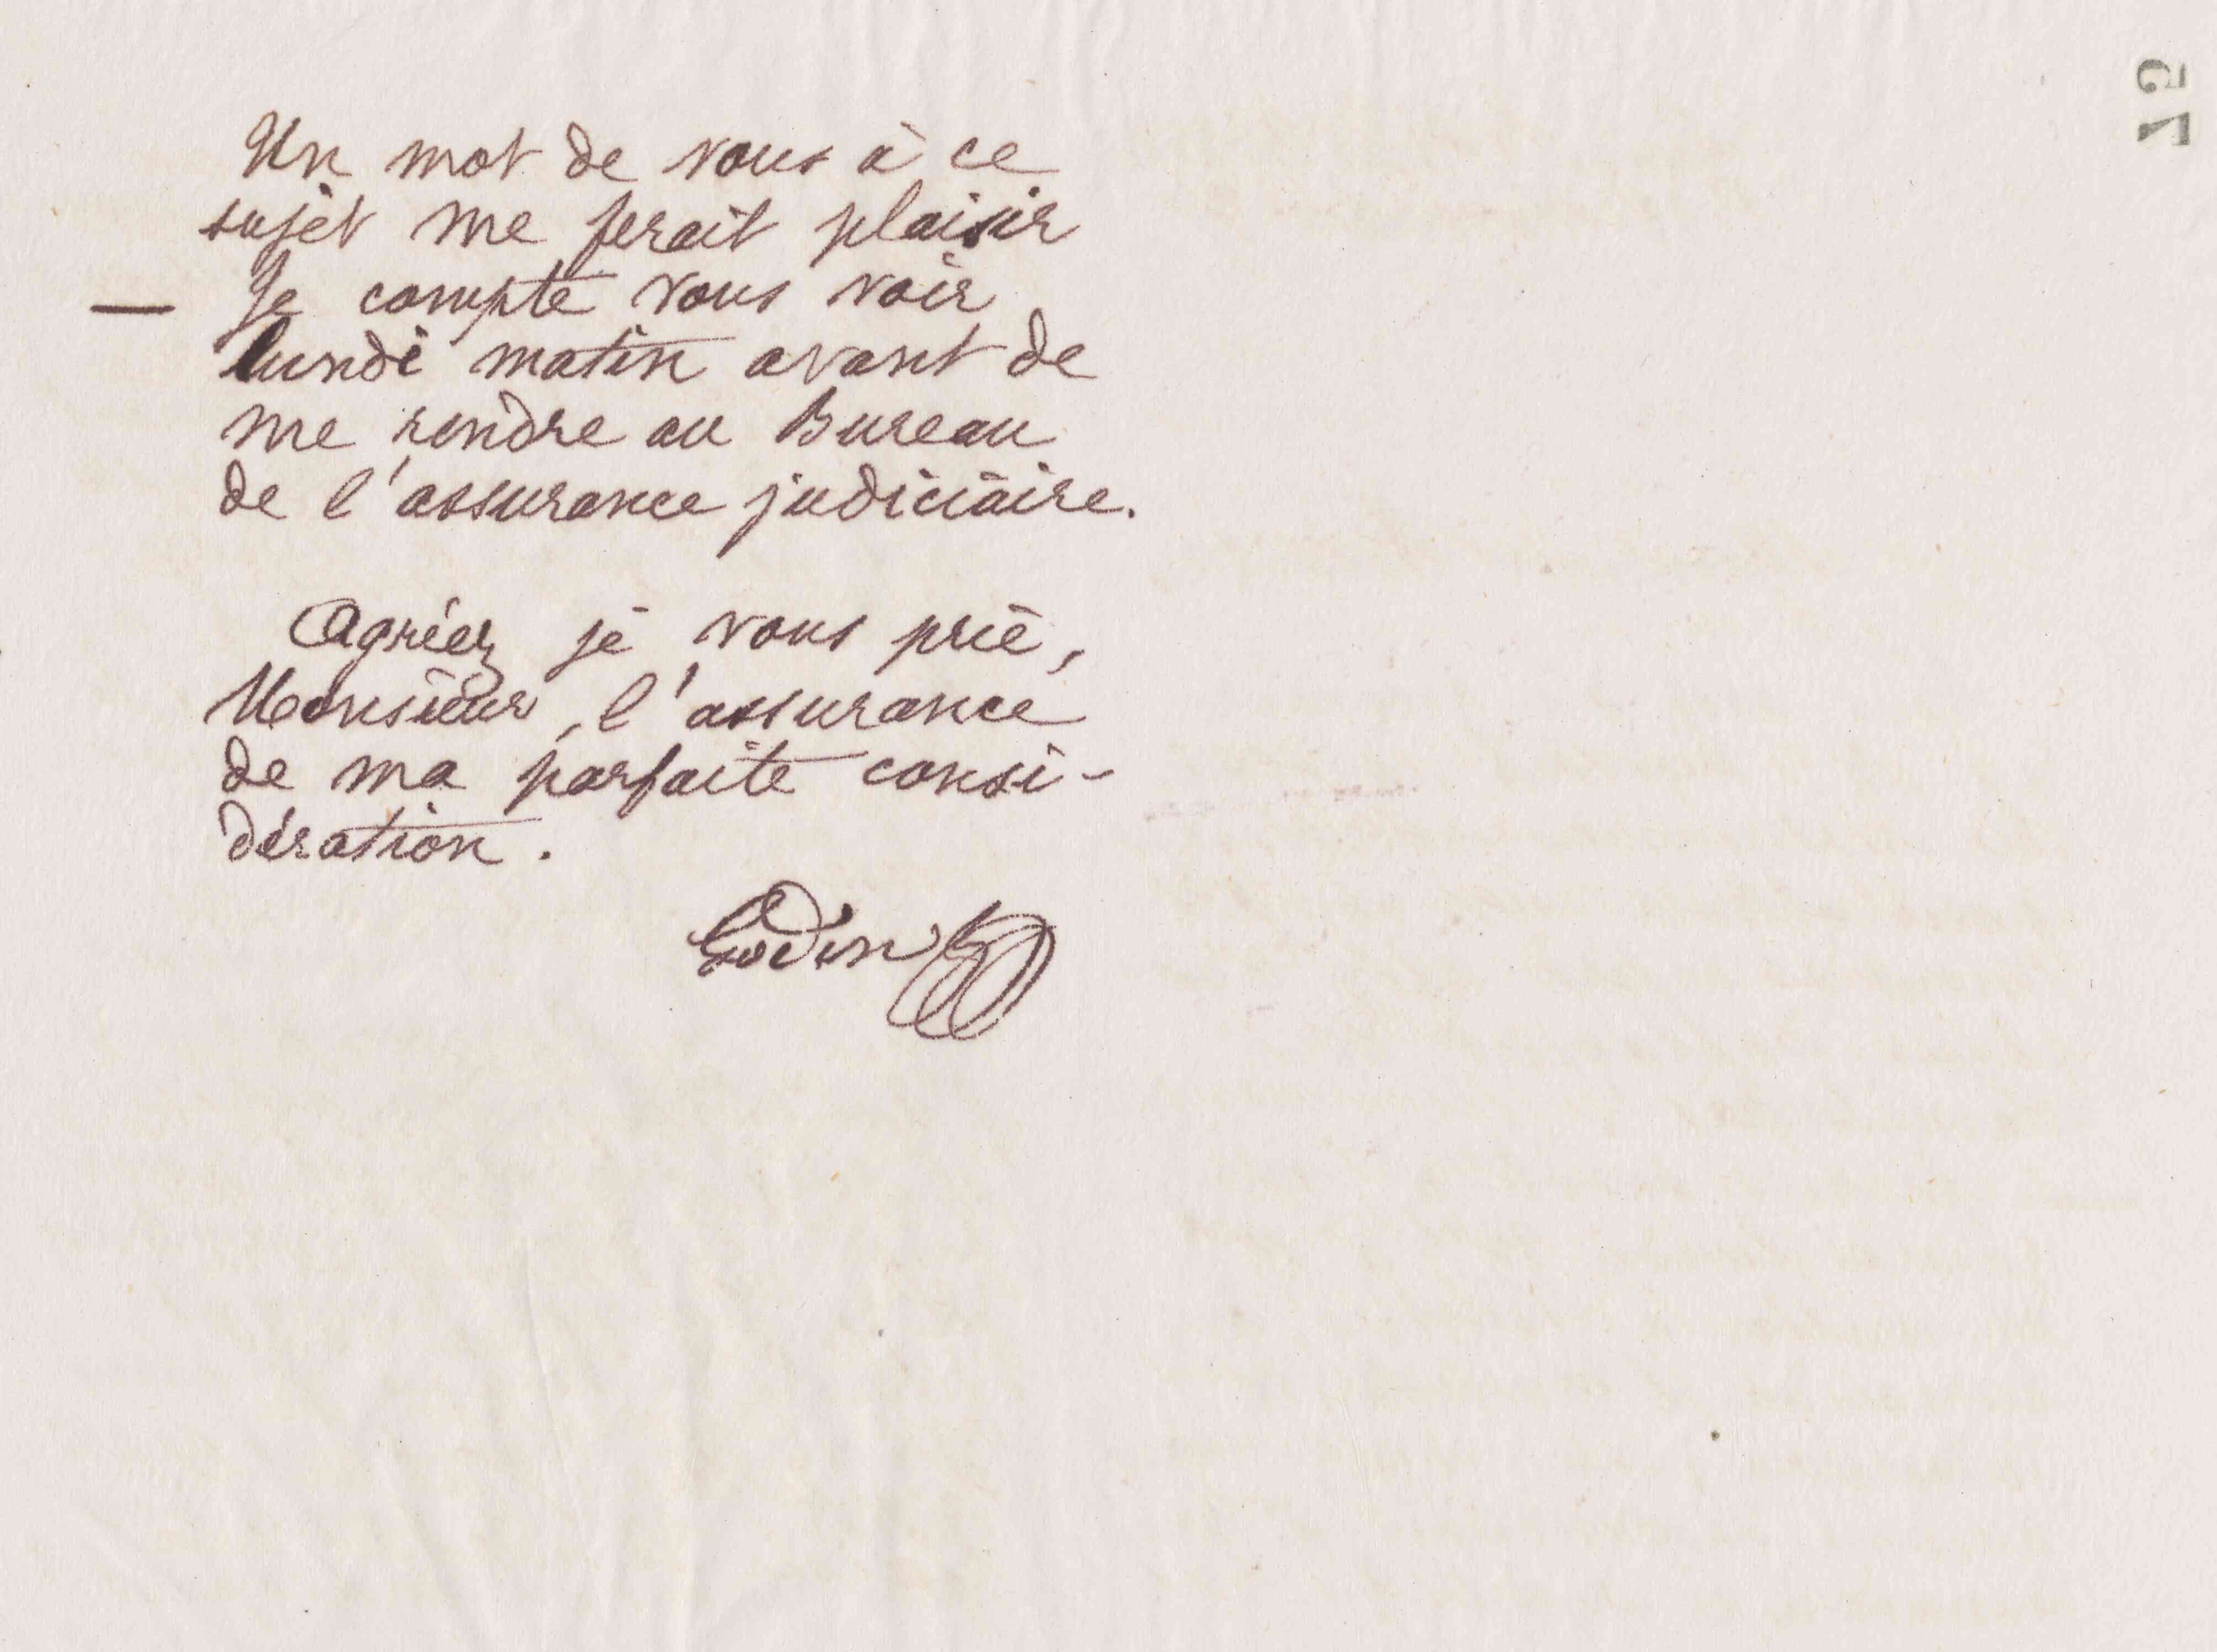 Un mot de vous à ce
sujet me ferait plaisir
— Je compte vous voir
lundi matin avant de
me rendre au Bureau
de l'assurance judiciaire.
Agréez je vous prie,
Monsieur, l'assurance
de ma parfaite consi-
dération.
Godin